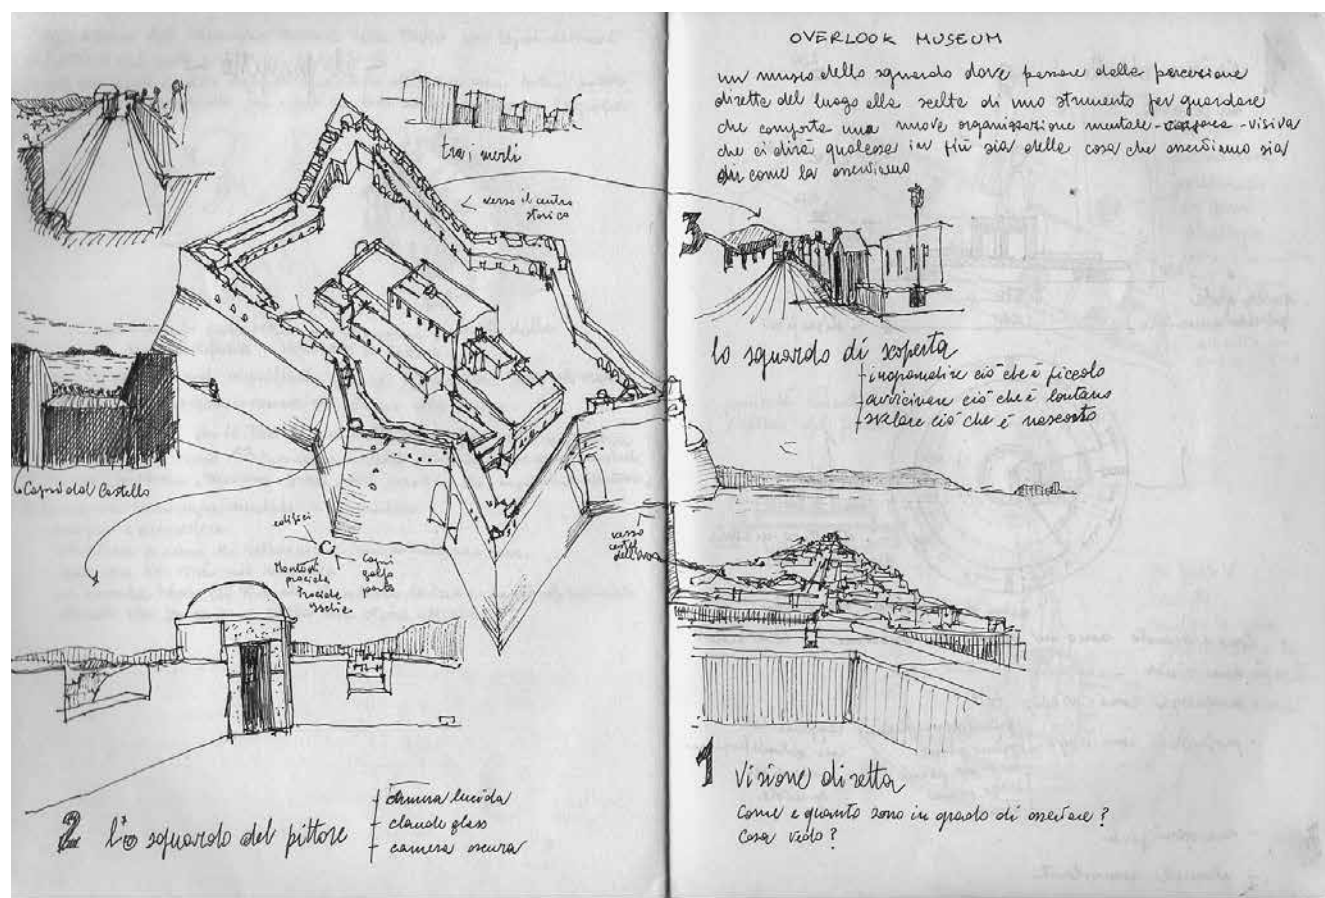 tra i merli
verso il centro
storico
Capri dal Castello
edifici
Monte di
procida
Procida
Ischia
Capri
golfo
porto
verso
castel
dell'ovo
2 lo sguardo del pittore
camera lucida
claude glass
camera oscura
OVERLOOK MUSEUM
un museo dello sguardo dove passare dalla percezione
diretta del luogo alla scelta di uno strumento per guardare
che comporta una nuova organizzazione mentale - - visiva
che ci dirà qualcosa in più sia della cosa che osserviamo sia
di come la osserviamo
3
lo sguardo di scoperta
ingrandire ciò che è piccolo
avvicinare ciò che è lontano
svelare ciò che è nascosto
1 Visione diretta
Come e quanto sono in grado di osservare?
Cosa vedo?